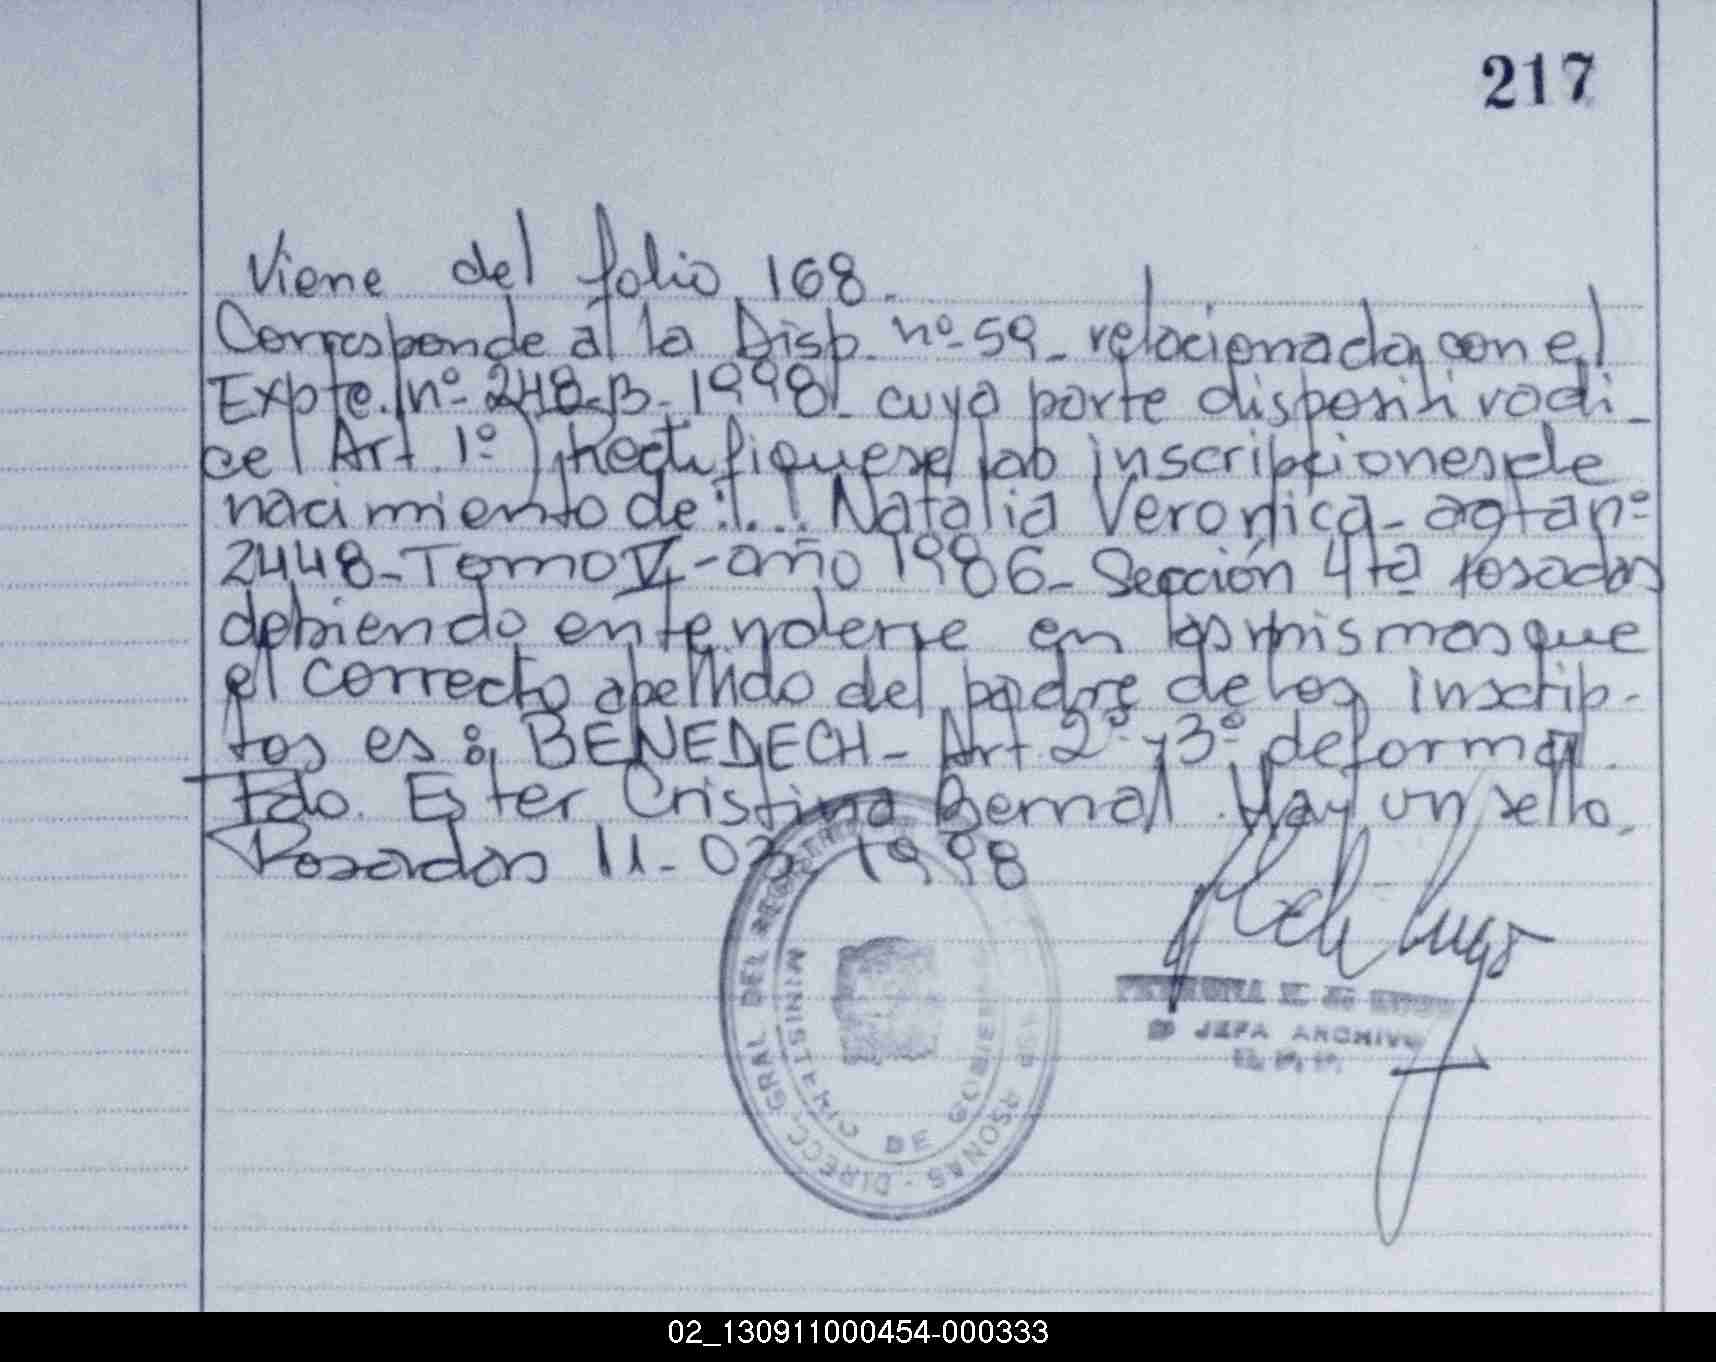 217
Viene del folio 168.
Corresponde al la Disp. nº 59 - relacionada con el
Expte. nº 248-B-1998 - cuya parte dispositiva di-
ce Art. 1º) Rectifiquese las inscripciones de
nacimiento de:... Natalia Veronica - acta nº
2448 - Tomo V - año 1986 - Sección 4ta Posadas
debiendo entenderse en las mismas que
el correcto apellido del padre de los inscrip-
tos es: BENEDECH - Art. 2º y 3º de forma.
Fdo. Ester Cristina Bernal. Hay un sello.
Posadas 11-03-1998
DIRECC. GRAL DEL
PERSONAS
MINISTERIO DE GOBIERNO
JEFA ARCHIVO
02_130911000454-000333